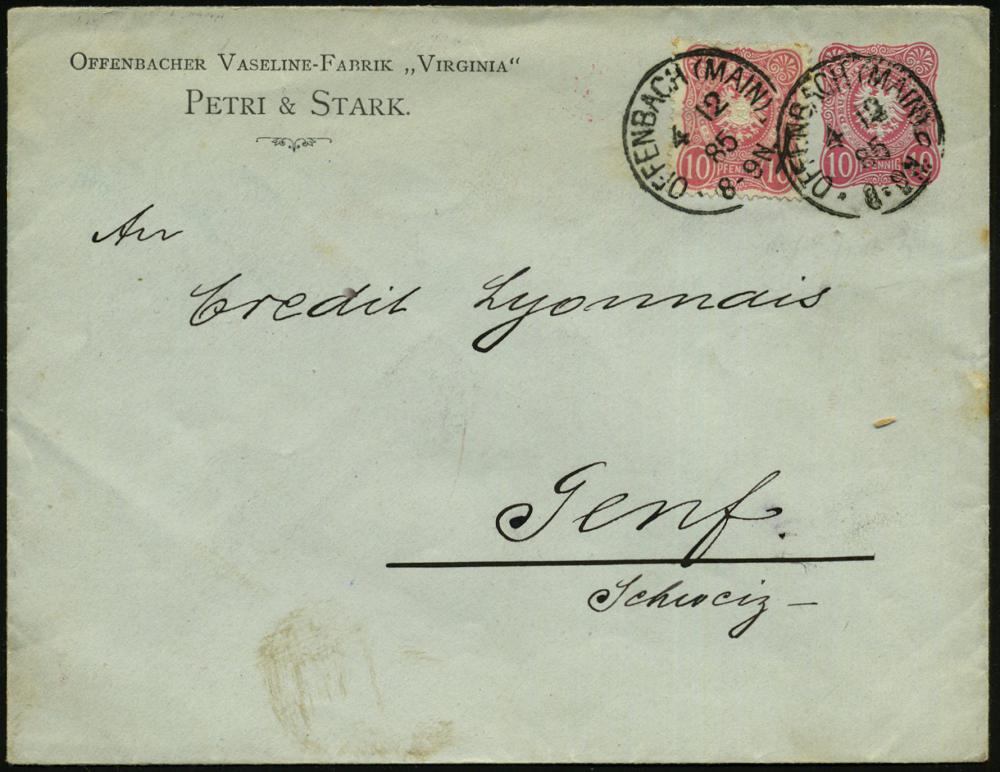 OFFENBACHER VASELINE-FABRIK „VIRGINIA“
PETRI & STARK.
OFFENBACH (MAIN)
4 12
85
8-9N
10 PFENNIG 10
OFFENBACH (MAIN)
4 12
85
8-9N
10 PFENNIG 10
An
Credit Lyonnais
Genf.
Schweiz